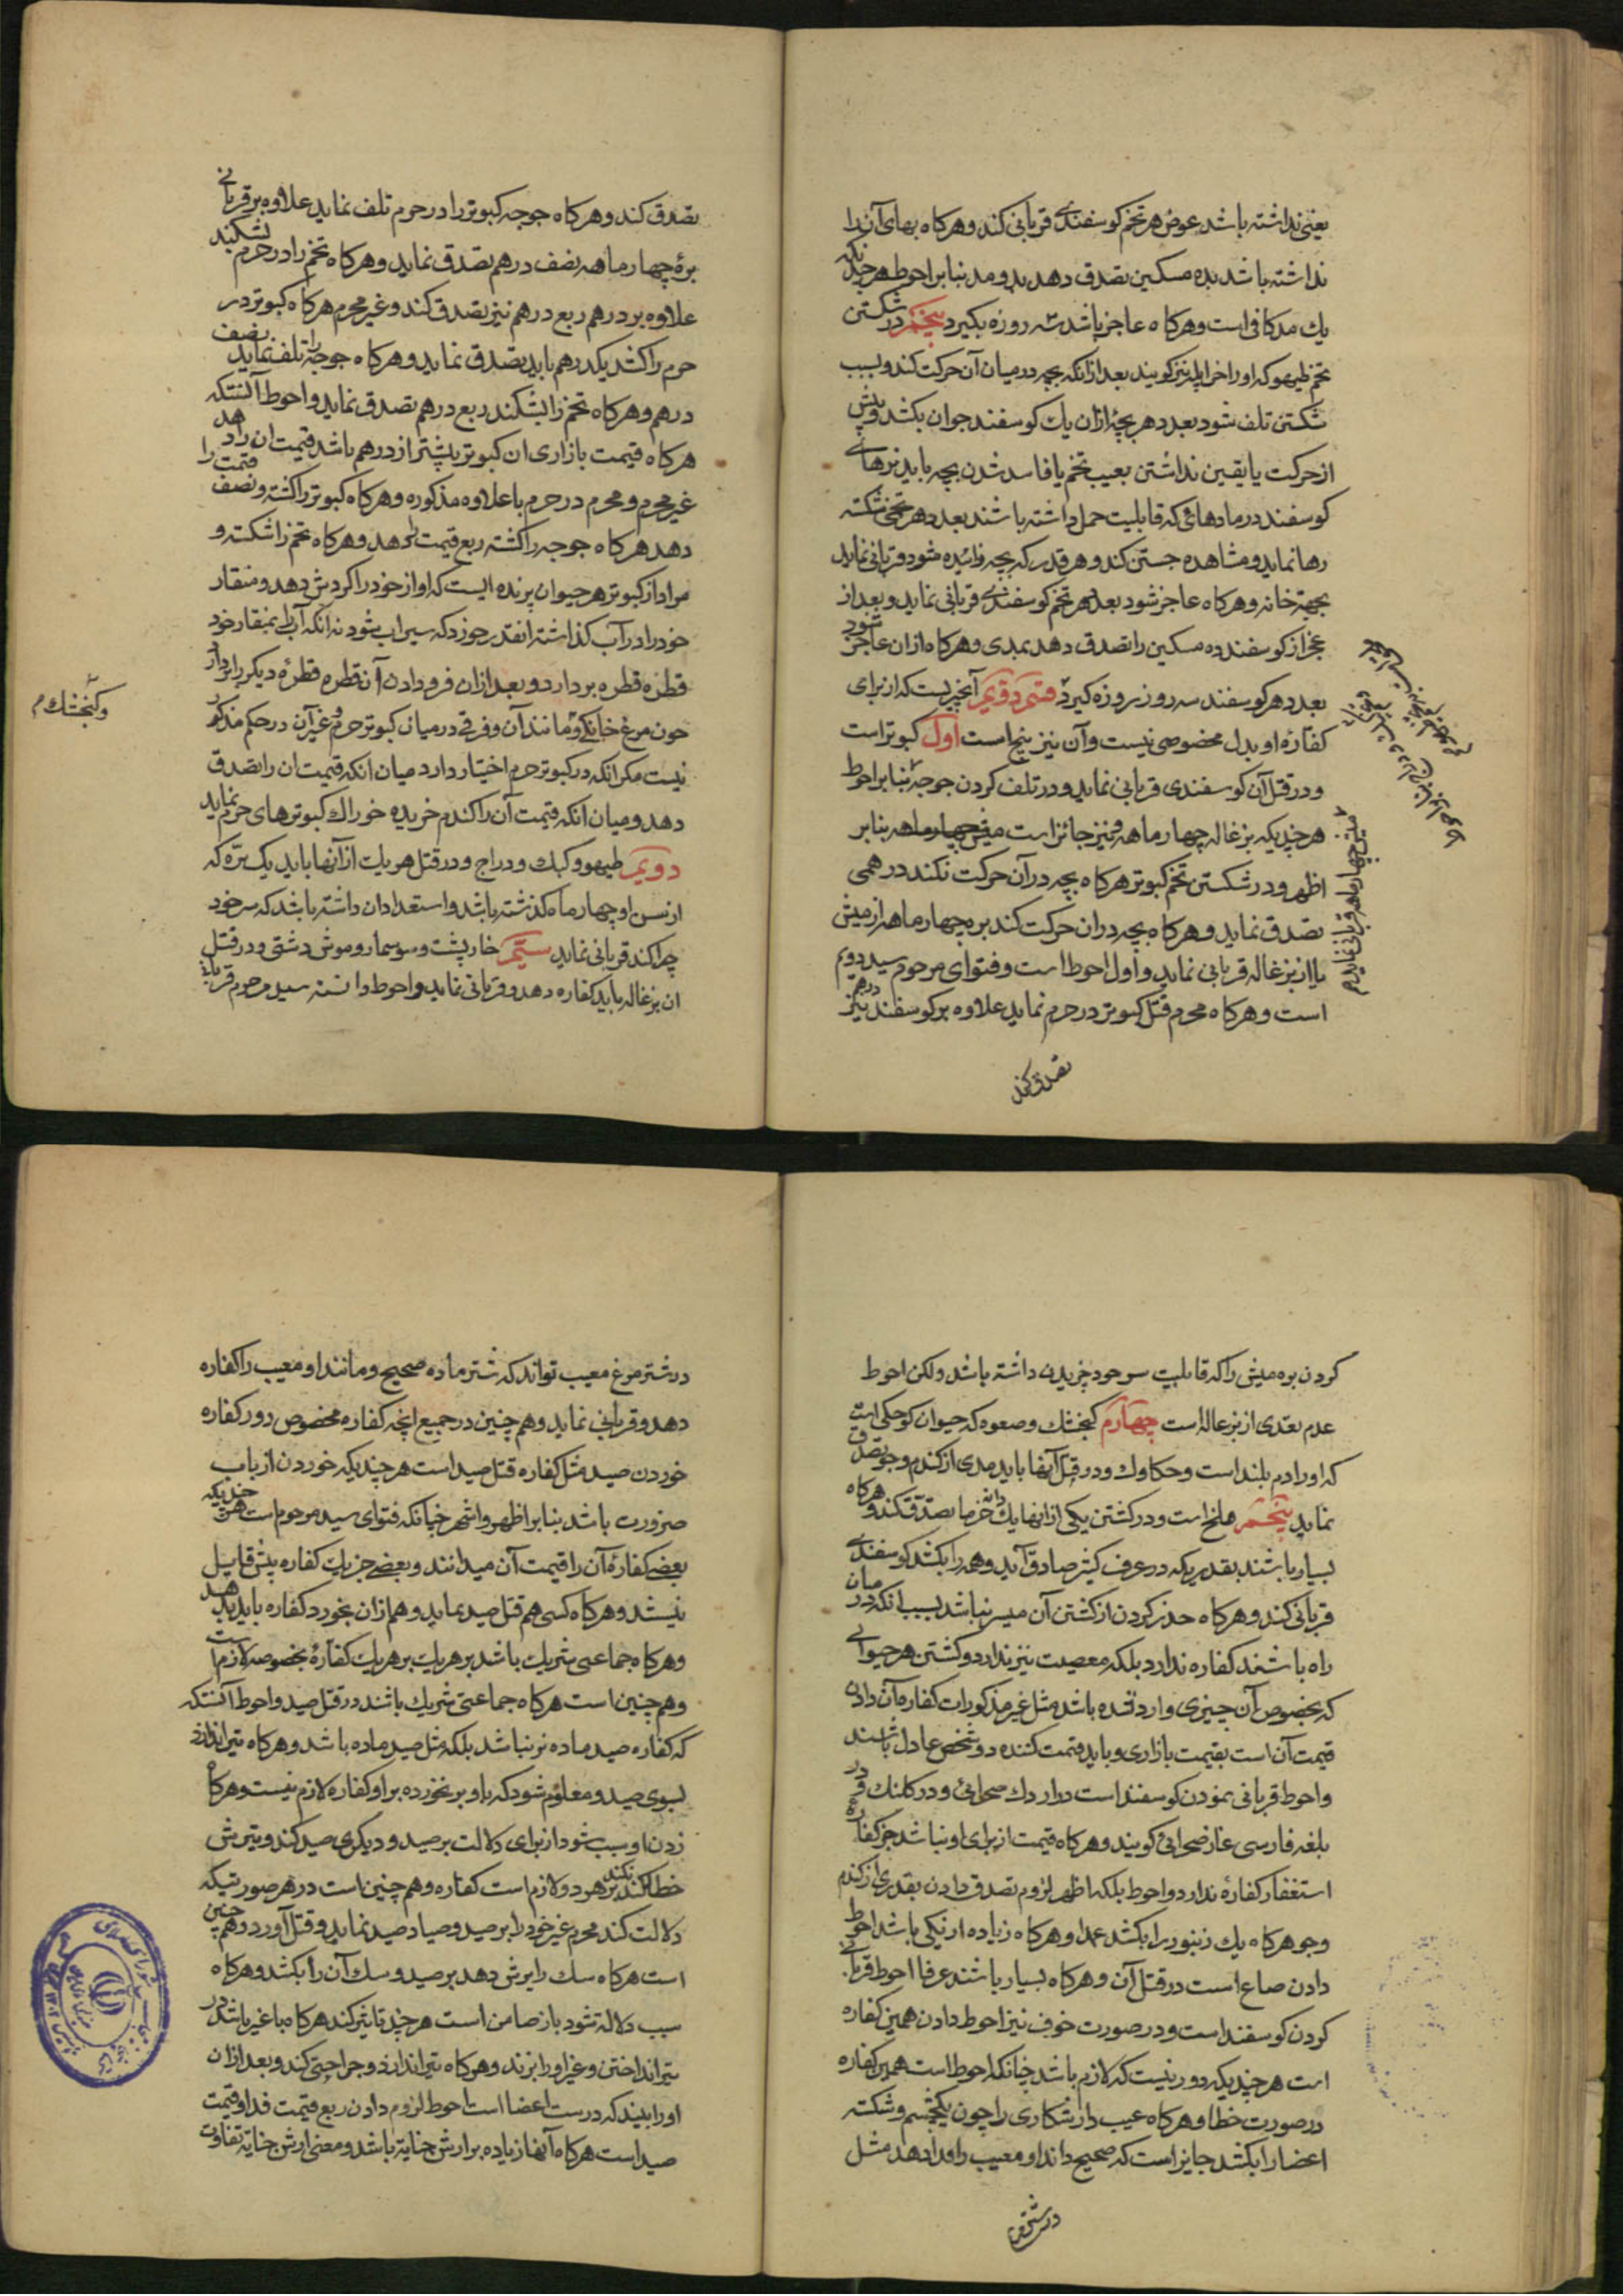 یعنی نداشته باشد عوض هر تخم کوسفندی قربانی کند و هرکاه بهای آنرا
نداشته باشد بده مسکین تصدق دهد بدو مد بنا بر احوط هر چند یکه
یك مد کافی است و هرکاه عاجز باشد سه روزه بکیرد پنجم در شکستن
تخم طیهو که او را نیز کویند بعد از انکه بچه در میان آن حرکت کند و بسبب
شکستن تلف شود بعدد هر بچهٔ از ان یك کوسفند جوان بکشد و پیش
از حرکت یا یقین نداشتن بعیب تخم یا فاسد شدن بچه باید نرهای
کوسفند در مادهائی که قابلیت حمل داشته باشند بعدد هر تخمی شکسته
رها نماید و مشاهده جستن کند و هر قدر که بچه زائیده شود قربانی نماید
بجهة خانه و هرکاه عاجز شود بعدد هر تخم کوسفندی قربانی نماید و بعد از
عجز از کوسفند ده مسکین را تصدق دهد بمدی و هرکاه ازان عاجز شود
بعدد هر کوسفند سه روز روزه کیرد قسم دویم آنچیزیست که از برای
کفارهٔ او بدل مخصوصی نیست و آن نیز پنج است اول کبوتر است
و در قتل آن کوسفندی قربانی نماید و در تلف کردن جوجه بنا بر احوط
هر چند یکه بزغاله چهار ماهه نیز جائز است میش چهار ماهه بنا بر
اظهر و در شکستن تخم کبوتر هرکاه بچه در آن حرکت نکند درهمی
تصدق نماید و هرکاه بچه دران حرکت کند بره چهار ماهه از میش
یا از بزغاله قربانی نماید و اول احوط است و فتوای مرحوم سید دویم
است و هرکاه محرم قتل کبوتر در حرم نماید علاوه بر کوسفند درهم نیز
میش چهار ماهه قربانی نماید م
تصدق کند
تصدق کند و هرکاه جوجه کبوتر را در حرم تلف نماید علاوه بر قربانی
برهٔ چهار ماهه نصف درهم تصدق نماید و هرکاه تخم را در حرم بشکند
علاوه بر درهم ربع درهم نیز تصدق کند و غیر محرم هرکاه کبوتر در
حرم را کشد یکدرهم باید تصدق نماید و هرکاه جوجه را تلف نماید نصف
درهم و هرکاه تخم را بشکند ربع درهم تصدق نماید و احوط آنستکه
هرکاه قیمت بازاری ان کبوتر بیشتر از درهم باشد قیمت ان را دهد
غیر محرم و محرم در حرم با علاوه مذکوره و هرکاه کبوتر را کشته و نصف قیمت را
دهد هرکاه جوجه را کشته ربع قیمت را دهد و هرکاه تخم را شکسته و
مراد از کبوتر هر حیوان پرنده ایست که اواز خود را کردش دهد و منقار
خود را در آب کذاشته انقدر خورد که سیراب شود نه انکه آب را بمنقار خود
قطره قطره بردارد و بعد ازان فرو دادن آن قطره قطرهٔ دیکر را بردارد
چون مرغ خانکی و مانند آن و فرقی در میان کبوتر حرم و غیر آن در حکم مذکور
نیست مکر انکه در کبوتر حرم اختیار دارد میان انکه قیمت ان را تصدق
دهد و میان انکه قیمت آن را کندم خریده خوراك کبوترهای حرم نماید
دویم طیهو و کبك و دراج و در قتل هر یك از آنها باید یک برّه که
از سن او چهار ماه کذشته باشد و استعداد ان داشته باشد که سر خود
چرا کند قربانی نماید سیّم خارپشت و سوسمار و موش دشتی و در قتل
ان بزغاله باید کفاره دهد و قربانی نماید و احوط دانسته سید مرحوم قربانی
و کنجشك م
کردن بره میش را که قابلیت سر خود چریدن داشته باشد ولکن احوط
عدم تعدی از بزغاله است چهارم کنجشك و صعوه که حیوان کوچکی است
که او را دم بلند است و چکاوك و در قتل آنها باید مدی از کندم و جو تصدق
نماید پنجم ملخ است و در کشتن یکی از انها یك دانه خرما تصدّق کند و هرکاه
بسیار باشند بقدریکه در عرف کثیر صادق آید و همه را بکشد کوسفندی
قربانی کند و هرکاه حذر کردن از کشتن آن میسر نباشد بسبب انکه در میان
راه باشند کفاره ندارد بلکه معصیت نیز ندارد و کشتن هر حیوانی
که بخصوص آن چیزی وارد نشده باشد مثل غیر مذکورات کفارهٔ آن دادن
قیمت آن است بقیمت بازاری و باید قیمت کننده دو شخص عادل باشند
و احوط قربانی نمودن کوسفند است در اردك صحرائی و در کلنك و در
بلغه فارسی غاز صحرائی کویند و هرکاه قیمت از برای او نباشد جز کفاره
استغفار کفارهٔ ندارد و احوط بلکه اظهر لزوم تصدق دادن بقدری از کندم
و جو هرکاه یك زنبور را بکشد عمدا و هرکاه زیاده از یکی باشد احوط
دادن صاع است در قتل آن و هرکاه بسیار باشند عرفا احوط قربانی
کردن کوسفند است و در صورت خوف نیز احوط دادن همین کفاره
است هر چند یکه دور نیست که لازم باشد چنانکه احوط است همین کفاره
در صورت خطا و هرکاه عیب دار شکاری را چون یکچشم و شکسته
اعضا را بکشد جایز است که صحیح داند او معیب را فدا دهد مثل
در شتر مرغ
در شتر مرغ معیب تواند که شتر ماده صحیح و مانند او معیب را کفاره
دهد و قربانی نماید و همچنین در جمیع انچه کفاره مخصوص دور کفاره
خوردن صید مثل کفاره قتل صید است هر چند یکه خوردن از باب
ضرورت باشد بنا بر اظهر و اشهر چنانکه فتوای سید مرحوم است هر چند یکه
بعضی کفارهٔ آن را قیمت آن میدانند و بعضی جز یك کفاره بیش قایل
نیستند و هرکاه کسی هم قتل صید نماید و هم ازان بخورد کفاره باید بدهد
و هرکاه جماعتی شریك باشد بر هر یك بر هر یك کفارهٔ بخصوصه لازم است
و همچنین است هرکاه جماعتی شریك باشند در قتل صید و احوط آنستکه
که کفاره صید ماده نر نباشد بلکه مثل صید ماده باشد و هرکاه تیر اندازد
بسوی صید و معلوم شود که باو بر نخورده بر او کفاره لازم نیست و هرکاه
زدن او سبب شود از برای دلالت بر صید و دیکری صید کند و تیرش
خطا کند بر هر دو لازم است کفاره و همچنین است در هر صورتیکه
دلالت کند محرم غیر خود را بر صید و صیاد صید نماید و قتل آورد و همچنین
است هرکاه سك را برش دهد بر صید و سك آن را بکشد و هرکاه
سبب دلاله شود باز ضامن است هر چند تاثیر کند هرکاه با غیر باشد در
تیر انداختن و غیر او را بزند و هرکاه تیر اندازد و جراحتی کند و بعد ازان
او را بیند که درست اعضا است احوط لزوم دادن ربع قیمت فدا و قیمت
صید است هرکاه آنها زیاده بر ارش جنایة باشد و معنی ارش جنایة تفاوت